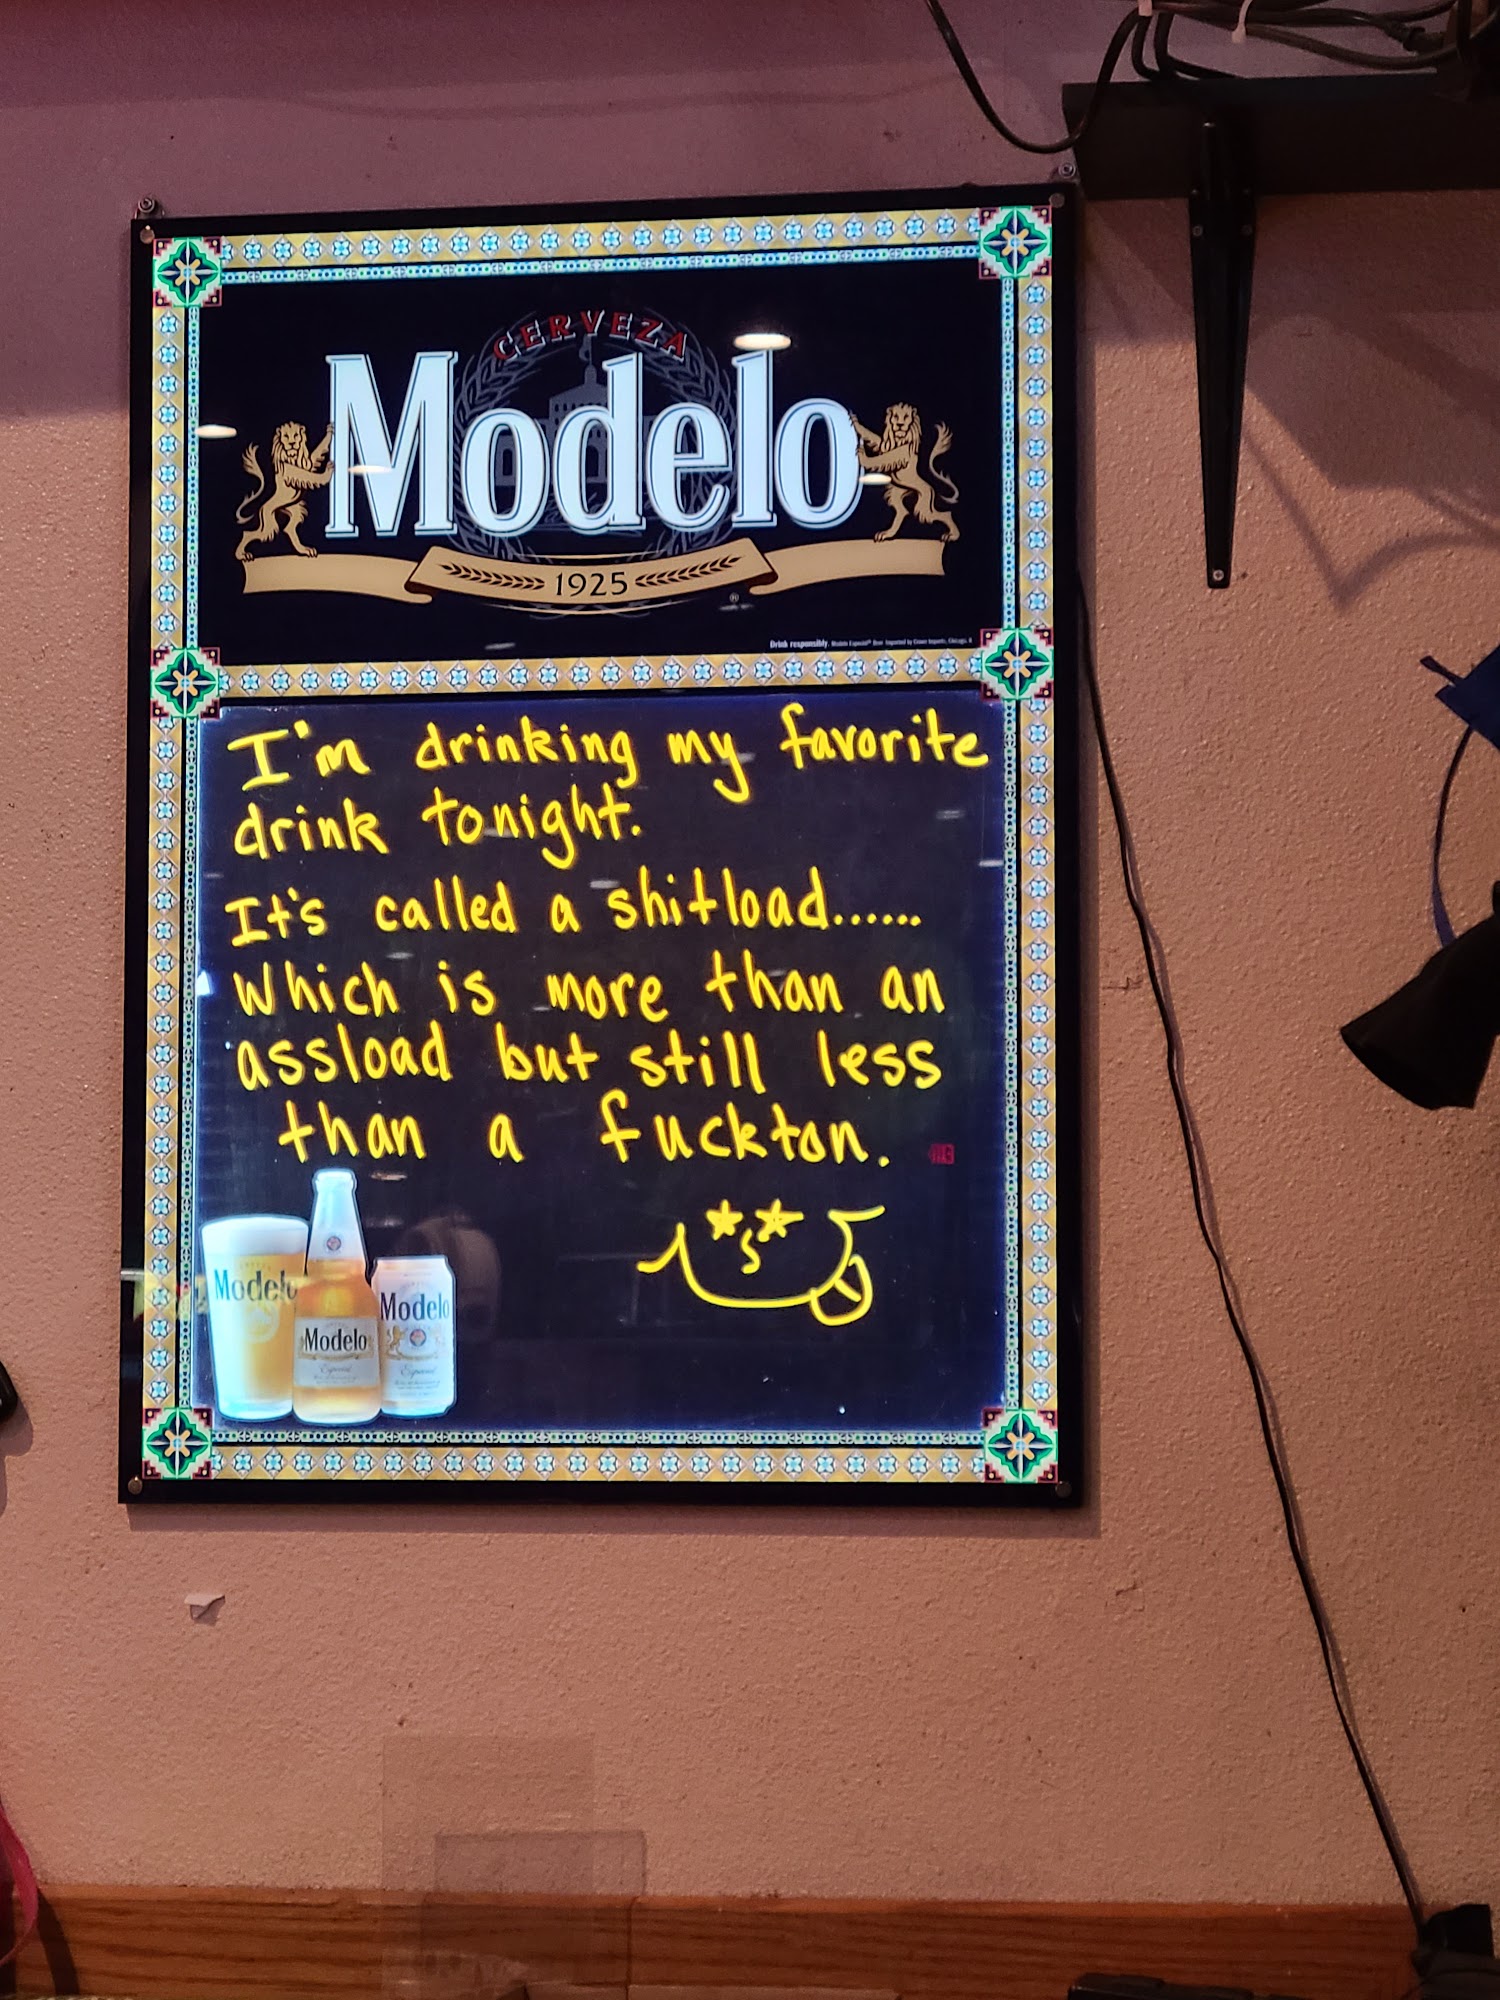 CERVEZA
Modelo
1925
®
Drink responsibly.
I'm drinking my favorite
drink tonight.
It's called a shitload......
Which is more than an
assload but still less
than a fuckton.
Modelo
Modelo
Especial
Modelo
Especial